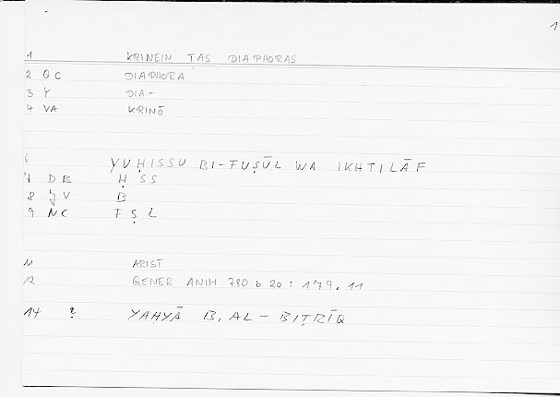 1
1 KRINEIN TAS DIAPHORAS
2 QC DIAPHORA
3 Y DIA-
4 VA KRINŌ
6 YUḤISSU BI-FUṢŪL WA IKHTILĀF
7 DB Ḥ SS
8 V B
9 NC F Ṣ L
11 ARIST
12 GENER ANIM 780 b 20 : 179. 11
14 ? YAHYĀ B. AL-BIṬRĪQ